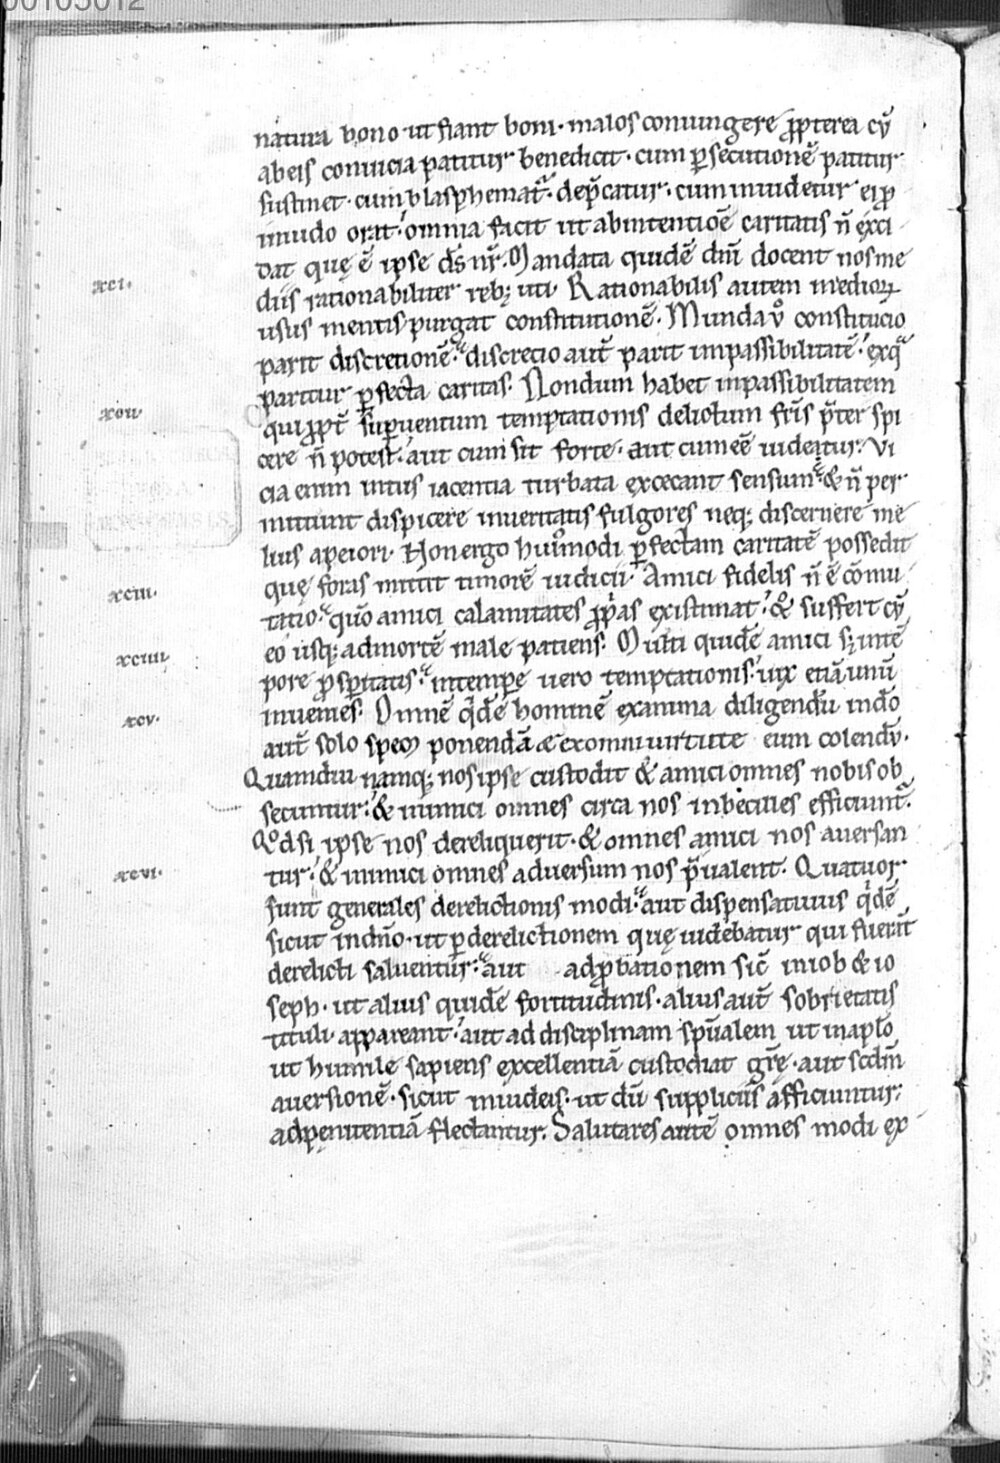 00105012
natura bono ut fiant boni · malos conuingere ꝓpterea cū
abeis conuicia patitur benedicit · cum ꝑsecutionē patitur
sustinet · cum blasphemat᷑ · dep̄catur · cum inuidetur ei ꝓ
inuido orat · omnia facit ut abintentiōe caritatis n̄ exci
dat quę ē ipse d̄s nr̄ . Mandata quidē dn̄i docent nos me
xci. diis rationabiliter reb; uti · Rationabilis autem medioꝝ
usus mentis purgat constitutionē · Munda ů constitucio
parit discretionē · discretio aut̄ parit impassibilitatē · ex q̄
paritur ꝑfecta caritas · Nondum habet inpassibilitatem
xcii qui ꝓpt̄ suꝑuentum temptationis delictum fr̄is p̄ter spi
cere n̄ potest · aut cum sit forte · aut cum eē uideatur · Vi
cia enim intus iacentia turbata excecant sensum · & n̄ per
mittunt dispicere inueritatis fulgores neq; discernere me
lius apeiori · Non ergo huiͦmodi ꝑfectam caritatē possedit
quę foras mittit timorē iudicii · Amici fidelis n̄ ē cōmu
xciii. tatio · quō amici calamitates ꝓp̄as existimat · & suffert cū
eo usq; admortē male patiens · Multi quidē amici s; intē
xciiii pore ꝓsꝑitatis · intemꝑe uero temptationis · uix etiā unū
inuenies · Omnē q̇dē hominē ex anima diligendū indō
xcv. aut̄ solo spem ponendā & exomni uirtute eum colendū ·
Quamdiu namq; nos ipse custodit & amici omnes nobis ob
secuntur · & inimici omnes circa nos inbecilles efficiunt᷑ ·
Qͦdsi ipse nos dereliquerit · & omnes amici nos auersan
xcvi. tur · & inimici omnes aduersum nos p̄ualent · Quatuor
sunt generales derelictionis modi · aut dispensatiuus q̇dē
sicut indn̄o · ut ꝑ derelictionem quę uidebatur qui fuer̄t
derelicti saluentur · aut adꝓbationem sic̄ iniob & io
seph · ut alius quidē fortitudinis · alius aut̄ sobrietatis
tituli appareant · aut ad disciplinam spūalem ut inaplō
ut humile sapiens excellentiā custodiat gr̄ę · aut scd̄m
auersionē · sicut iniudeis · ut dū suppliciis afficiuntur ·
adpenitentiā flectantur · Salutares autē omnes modi ex